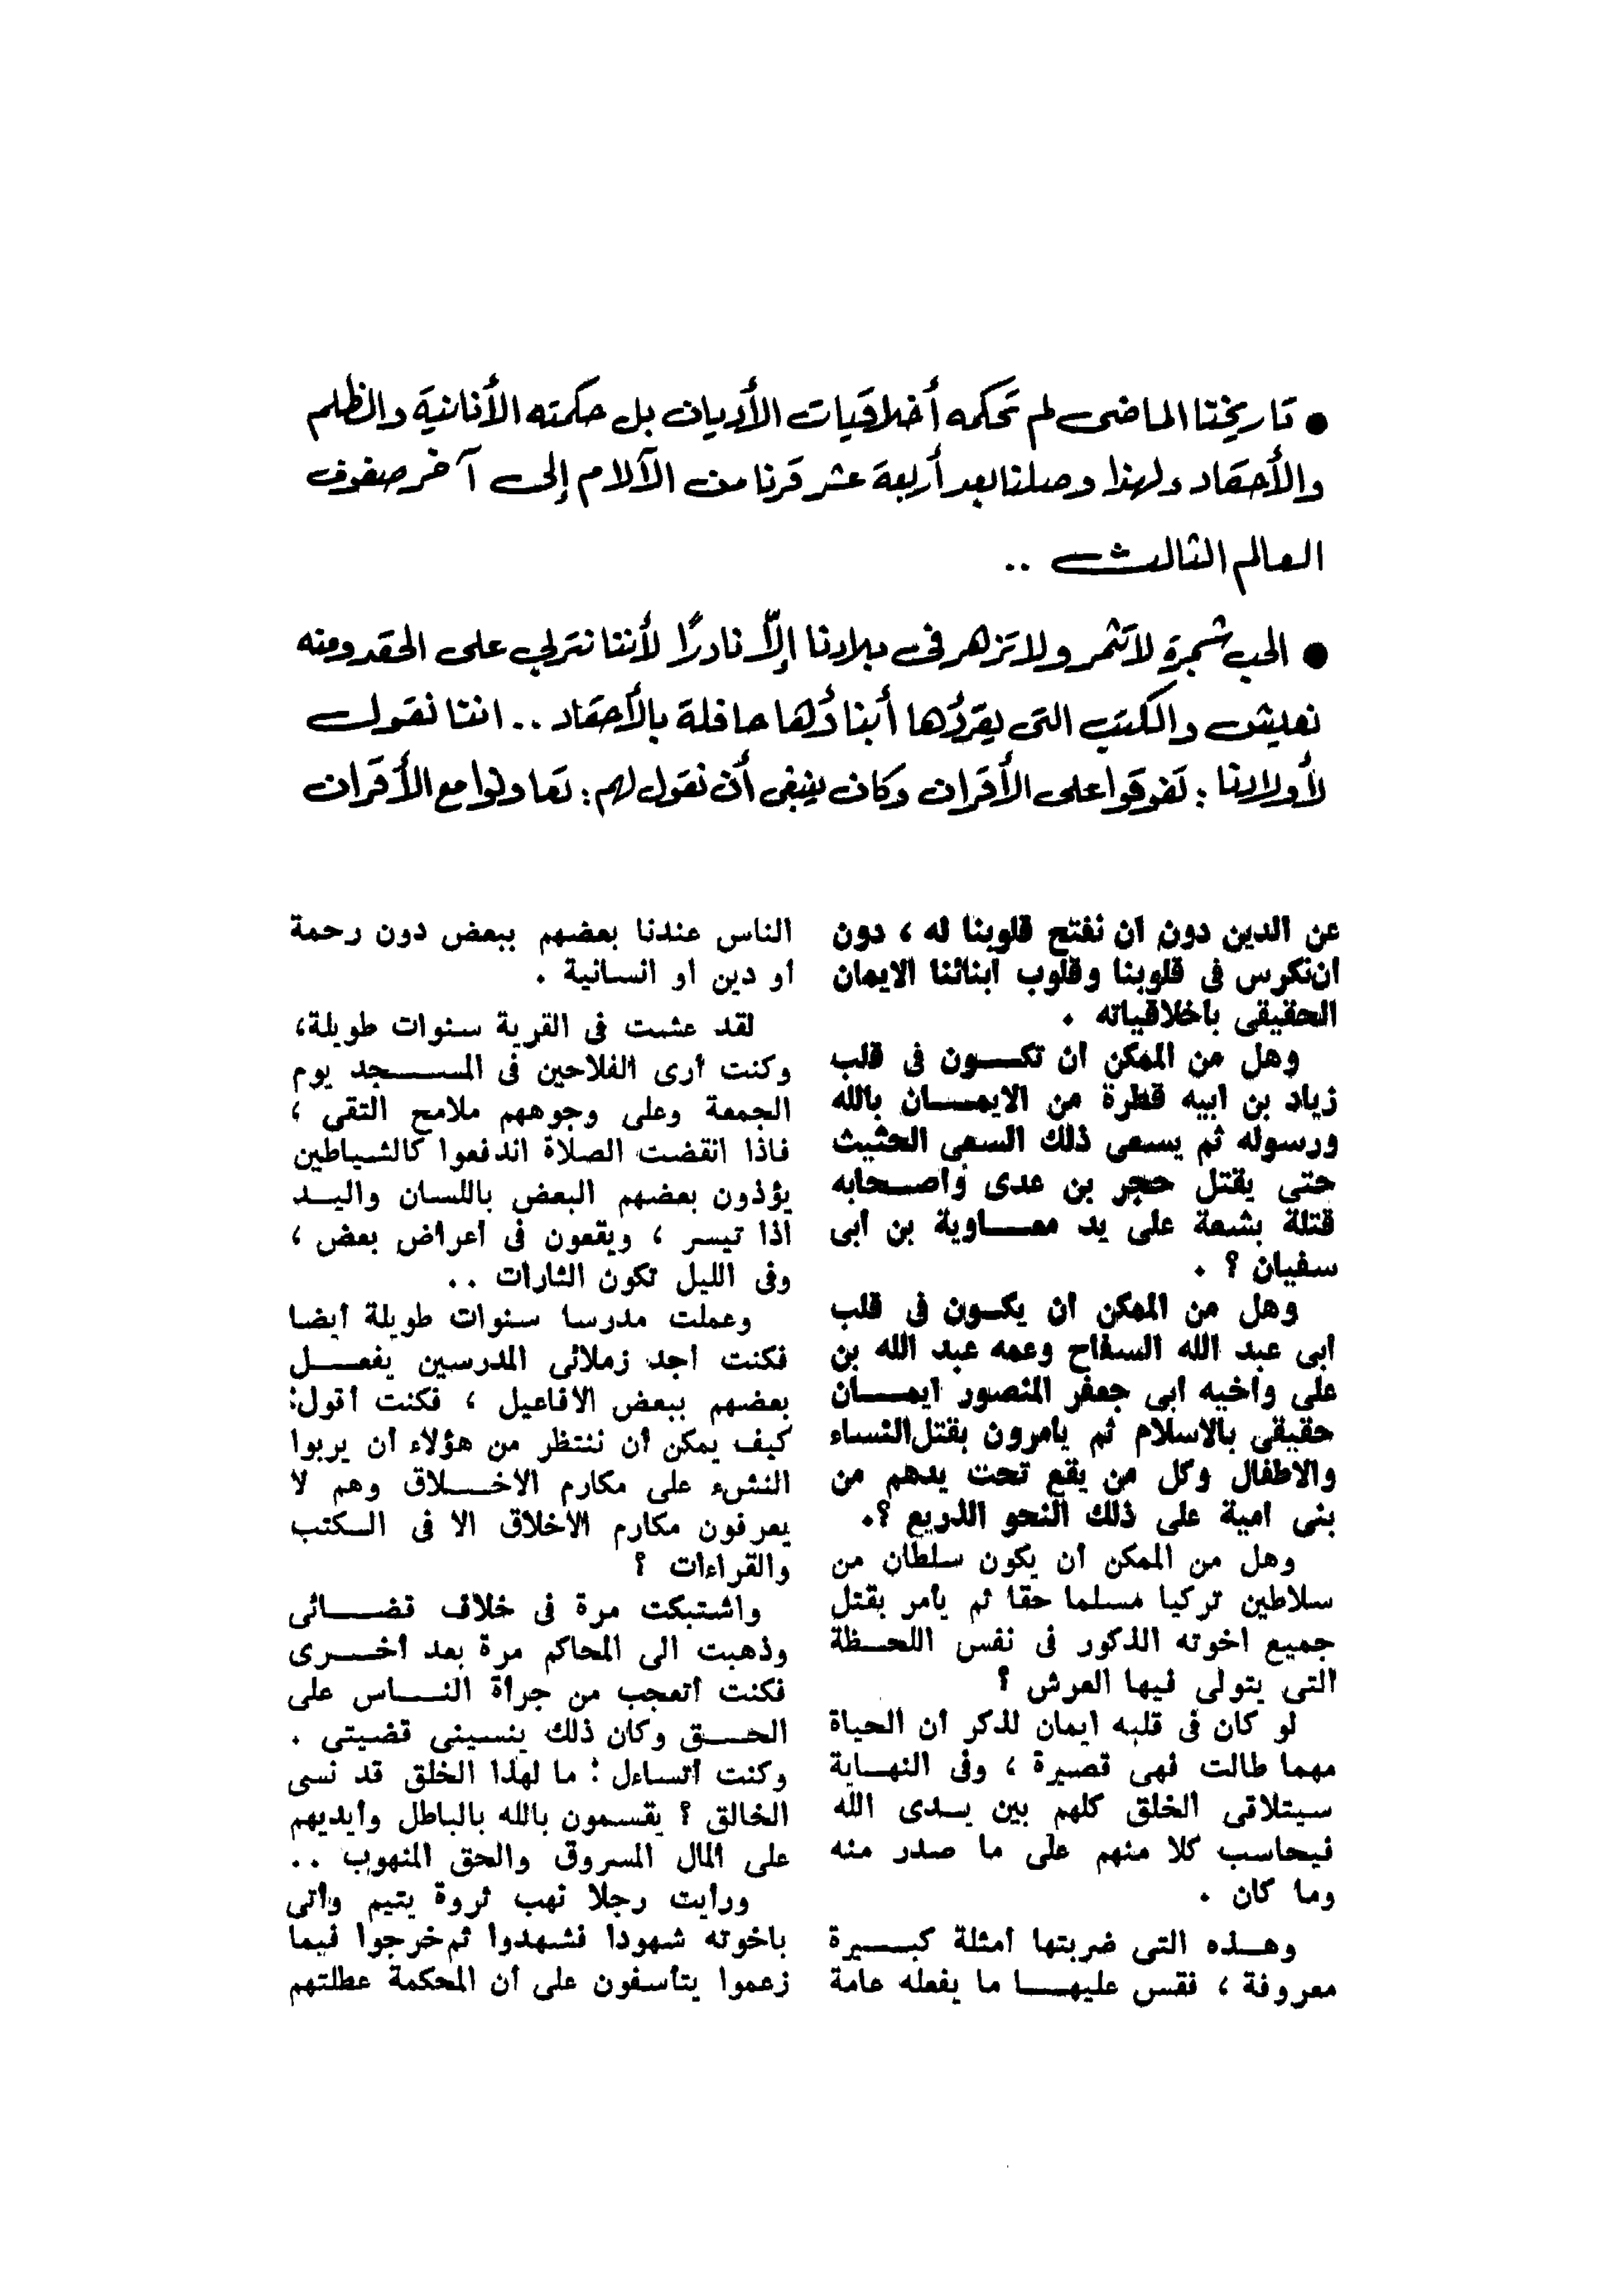 ● تاريخنا الماضى لم تحكمه أخلاقيات الأديان بل حكمته الأنانية والظلم
والأحقاد ولهذا وصلنا بعد أربعة عشر قرنا من الآلام إلى آخر صفوف
العالم الثالث ..
● الحب شجرة لاتثمر ولا تزهر فى بلادنا إلاّ نادرًا لأننا نتربى على الحقد ومنه
نعيش والكتب التى يقرؤها أبناؤها حافلة بالأحقاد .. اننا نقول
لأولادنا : تفوقوا على الأقران وكان ينبغى أن نقول لهم : تعاونوا مع الأقران
عن الدين دون ان نفتح قلوبنا له ، دون
ان نكرس فى قلوبنا وقلوب ابنائنا الايمان
الحقيقى باخلاقياته .
وهل من الممكن ان تكـــون فى قلب
زياد بن ابيه قطرة من الايمـــان بالله
ورسوله ثم يسعى ذلك السعى الحثيث
حتى يقتل حجر بن عدى واصـحابه
قتلة بشعة على يد معـــاوية بن ابى
سفيان ؟ .
وهل من الممكن ان يكـون فى قلب
ابى عبد الله السفاح وعمه عبد الله بن
على واخيه ابى جعفر المنصور ايمـــان
حقيقى بالاسلام ثم يأمرون بقتل النساء
والاطفال وكل من يقع تحت يدهم من
بنى امية على ذلك النحو الذريع ؟.
وهل من الممكن أن يكون سلطان من
سلاطين تركيا مسلما حقا ثم يأمر بقتل
جميع اخوته الذكور فى نفس اللحـظة
التى يتولى فيها العرش ؟
لو كان فى قلبه ايمان لذكر أن الحياة
مهما طالت فهى قصيرة ، وفى النهـاية
سيتلاقى الخلق كلهم بين يـدى الله
فيحاسب كلا منهم على ما صدر منه
وما كان .
وهـذه التى ضربتها أمثلة كبـــيرة
معروفة ، فقس عليهـــا ما يفعله عامة
الناس عندنا بعضهم ببعض دون رحمة
أو دين أو انسانية .
لقد عشت فى القرية سنوات طويلة،
وكنت أرى الفلاحين فى المســـجد يوم
الجمعة وعلى وجوههم ملامح التقى ،
فاذا انقضت الصلاة اندفعوا كالشياطين
يؤذون بعضهم البعض باللسان واليـد
اذا تيسر ، ويقعون فى أعراض بعض ،
وفى الليل تكون الثارات ..
وعملت مدرسا سنوات طويلة أيضا
فكنت أجد زملائى المدرسين يفعـــل
بعضهم ببعض الافاعيل ، فكنت أقول:
كيف يمكن أن ننتظر من هؤلاء أن يربوا
النشء على مكارم الاخـــلاق وهم لا
يعرفون مكارم الاخلاق الا فى الـكتب
والقراءات ؟
واشتبكت مرة فى خلاف قضـــائى
وذهبت الى المحاكم مرة بعد أخـــرى
فكنت أتعجب من جرأة النـــاس على
الحـــق وكان ذلك ينسينى قضيتى .
وكنت أتساءل : ما لهذا الخلق قد نسى
الخالق ؟ يقسمون بالله بالباطل وأيديهم
على المال المسروق والحق المنهوب ..
ورأيت رجلا نهب ثروة يتيم وأتى
باخوته شهودا فشهدوا ثم خرجوا فيما
زعموا يتأسفون على أن المحكمة عطلتهم